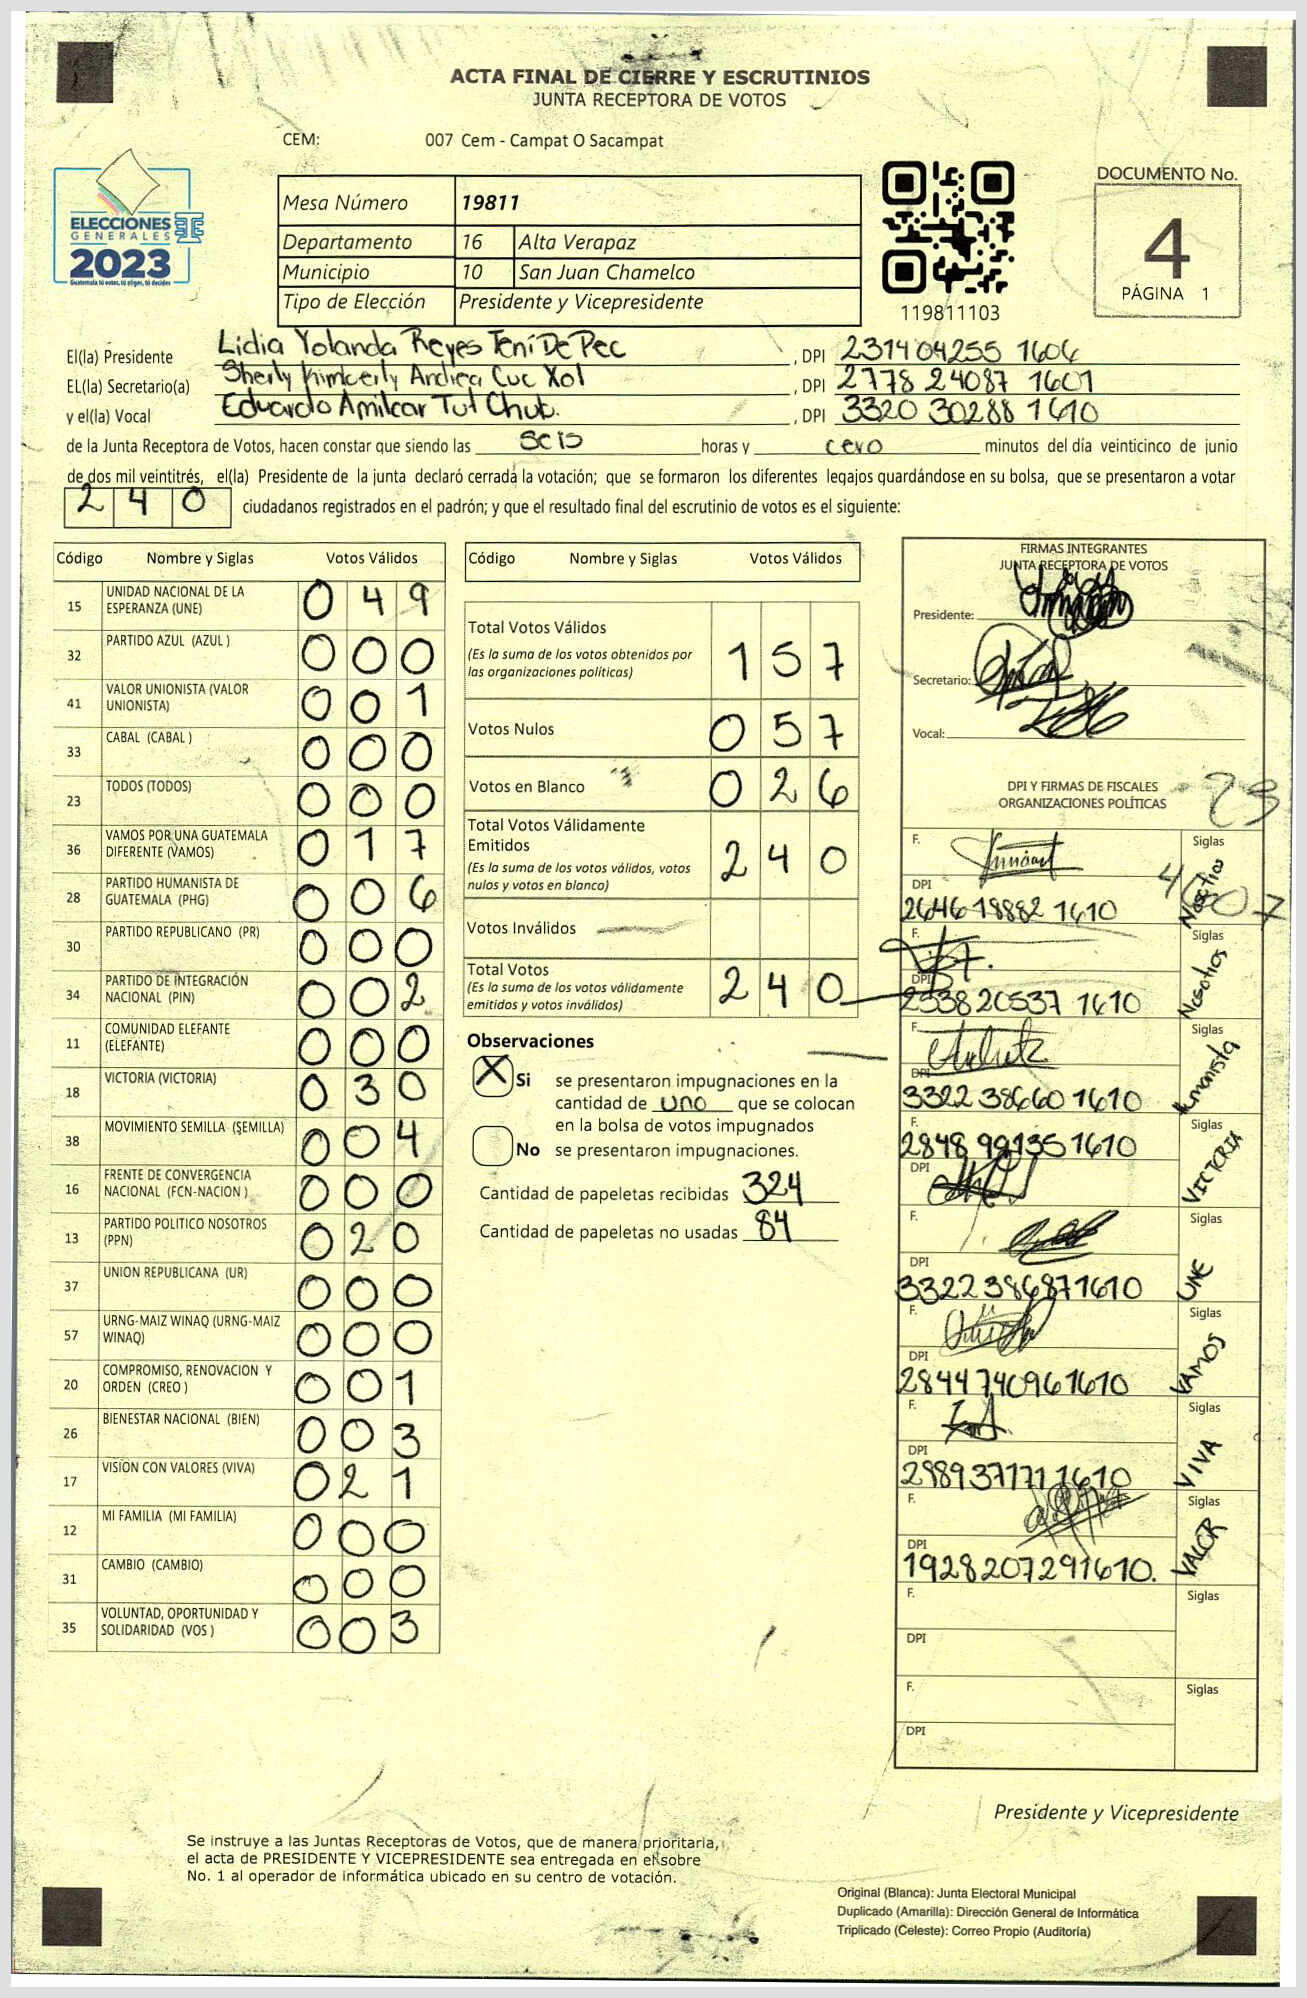 ACTA FINAL DE CIERRE Y ESCRUTINIOS
JUNTA RECEPTORA DE VOTOS
CEM: 007 Cem - Campat O Sacampat
ELECCIONES
GENERALES
2023
Guatemala tú votes, tú eliges, tú decides
Mesa Número 19811
Departamento 16 Alta Verapaz
Municipio 10 San Juan Chamelco
Tipo de Elección Presidente y Vicepresidente
119811103
DOCUMENTO No.
4
PÁGINA 1
El(la) Presidente Lidia Yolanda Reyes Teni De Pec , DPI 231404255 1606
EL(la) Secretario(a) Sherly Kimberly Andrea Cuc Xol , DPI 2778 24087 1601
y el(la) Vocal Eduardo Amilcar Tut Chub. , DPI 3320 30288 1610
de la Junta Receptora de Votos, hacen constar que siendo las seis horas y cero minutos del día veinticinco de junio
de dos mil veintitrés, el(la) Presidente de la junta declaró cerrada la votación; que se formaron los diferentes legajos guardándose en su bolsa, que se presentaron a votar
240 ciudadanos registrados en el padrón; y que el resultado final del escrutinio de votos es el siguiente:
Código Nombre y Siglas Votos Válidos
15 UNIDAD NACIONAL DE LA ESPERANZA (UNE) 0 4 9
32 PARTIDO AZUL (AZUL ) 0 0 0
41 VALOR UNIONISTA (VALOR UNIONISTA) 0 0 1
33 CABAL (CABAL ) 0 0 0
23 TODOS (TODOS) 0 0 0
36 VAMOS POR UNA GUATEMALA DIFERENTE (VAMOS) 0 1 7
28 PARTIDO HUMANISTA DE GUATEMALA (PHG) 0 0 6
30 PARTIDO REPUBLICANO (PR) 0 0 0
34 PARTIDO DE INTEGRACIÓN NACIONAL (PIN) 0 0 2
11 COMUNIDAD ELEFANTE (ELEFANTE) 0 0 0
18 VICTORIA (VICTORIA) 0 3 0
38 MOVIMIENTO SEMILLA (SEMILLA) 0 0 4
16 FRENTE DE CONVERGENCIA NACIONAL (FCN-NACION ) 0 0 0
13 PARTIDO POLITICO NOSOTROS (PPN) 0 2 0
37 UNION REPUBLICANA (UR) 0 0 0
57 URNG-MAIZ WINAQ (URNG-MAIZ WINAQ) 0 0 0
20 COMPROMISO, RENOVACION Y ORDEN (CREO ) 0 0 1
26 BIENESTAR NACIONAL (BIEN) 0 0 3
17 VISION CON VALORES (VIVA) 0 2 1
12 MI FAMILIA (MI FAMILIA) 0 0 0
31 CAMBIO (CAMBIO) 0 0 0
35 VOLUNTAD, OPORTUNIDAD Y SOLIDARIDAD (VOS ) 0 0 3
Código Nombre y Siglas Votos Válidos
Total Votos Válidos 1 5 7
(Es la suma de los votos obtenidos por
las organizaciones políticas)
Votos Nulos 0 5 7
Votos en Blanco 0 2 6
Total Votos Válidamente
Emitidos 2 4 0
(Es la suma de los votos válidos, votos
nulos y votos en blanco)
Votos Inválidos
Total Votos 2 4 0
(Es la suma de los votos válidamente
emitidos y votos inválidos)
Observaciones
X Si se presentaron impugnaciones en la
cantidad de uno que se colocan
en la bolsa de votos impugnados
No se presentaron impugnaciones.
Cantidad de papeletas recibidas 324
Cantidad de papeletas no usadas 84
FIRMAS INTEGRANTES
JUNTA RECEPTORA DE VOTOS
Presidente:
Secretario:
Vocal:
DPI Y FIRMAS DE FISCALES
ORGANIZACIONES POLÍTICAS
23
4607
F. Siglas
DPI Nosotros
2646 18882 1610
F. Siglas
DPI Nosotros
2538 20537 1610
F. Siglas
DPI Humanista
3322 38660 1610
F. Siglas
2848 99135 1610
DPI VICTORIA
F. Siglas
DPI UNE
3322 38687 1610
F. Siglas
DPI VAMOS
2844 74096 1610
F. Siglas
DPI VIVA
2989 37171 1610
F. Siglas
DPI VALOR
1928 20729 1610.
F. Siglas
DPI
F. Siglas
DPI
Presidente y Vicepresidente
Se instruye a las Juntas Receptoras de Votos, que de manera prioritaria,
el acta de PRESIDENTE Y VICEPRESIDENTE sea entregada en el sobre
No. 1 al operador de informática ubicado en su centro de votación.
Original (Blanca): Junta Electoral Municipal
Duplicado (Amarilla): Dirección General de Informática
Triplicado (Celeste): Correo Propio (Auditoría)